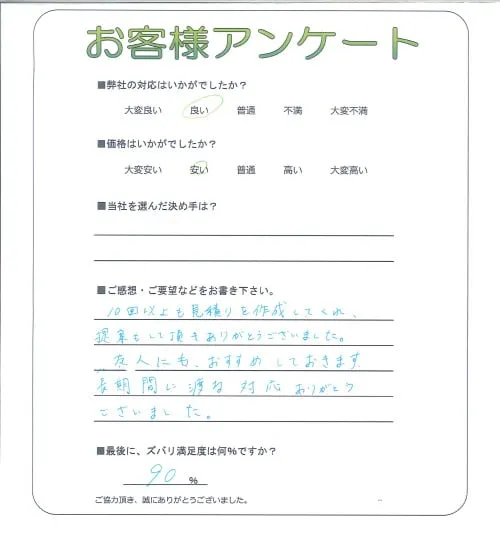 お客様アンケート
■弊社の対応はいかがでしたか？
大変良い 良い 普通 不満 大変不満
■価格はいかがでしたか？
大変安い 安い 普通 高い 大変高い
■当社を選んだ決め手は？
■ご感想・ご要望などをお書き下さい。
10回以上も見積りを作成してくれ、
提案もして頂きありがとうございました。
友人にも、おすすめしておきます
長期間に渡る対応ありがとう
ございました。
■最後に、ズバリ満足度は何％ですか？
90 ％
ご協力頂き、誠にありがとうございました。